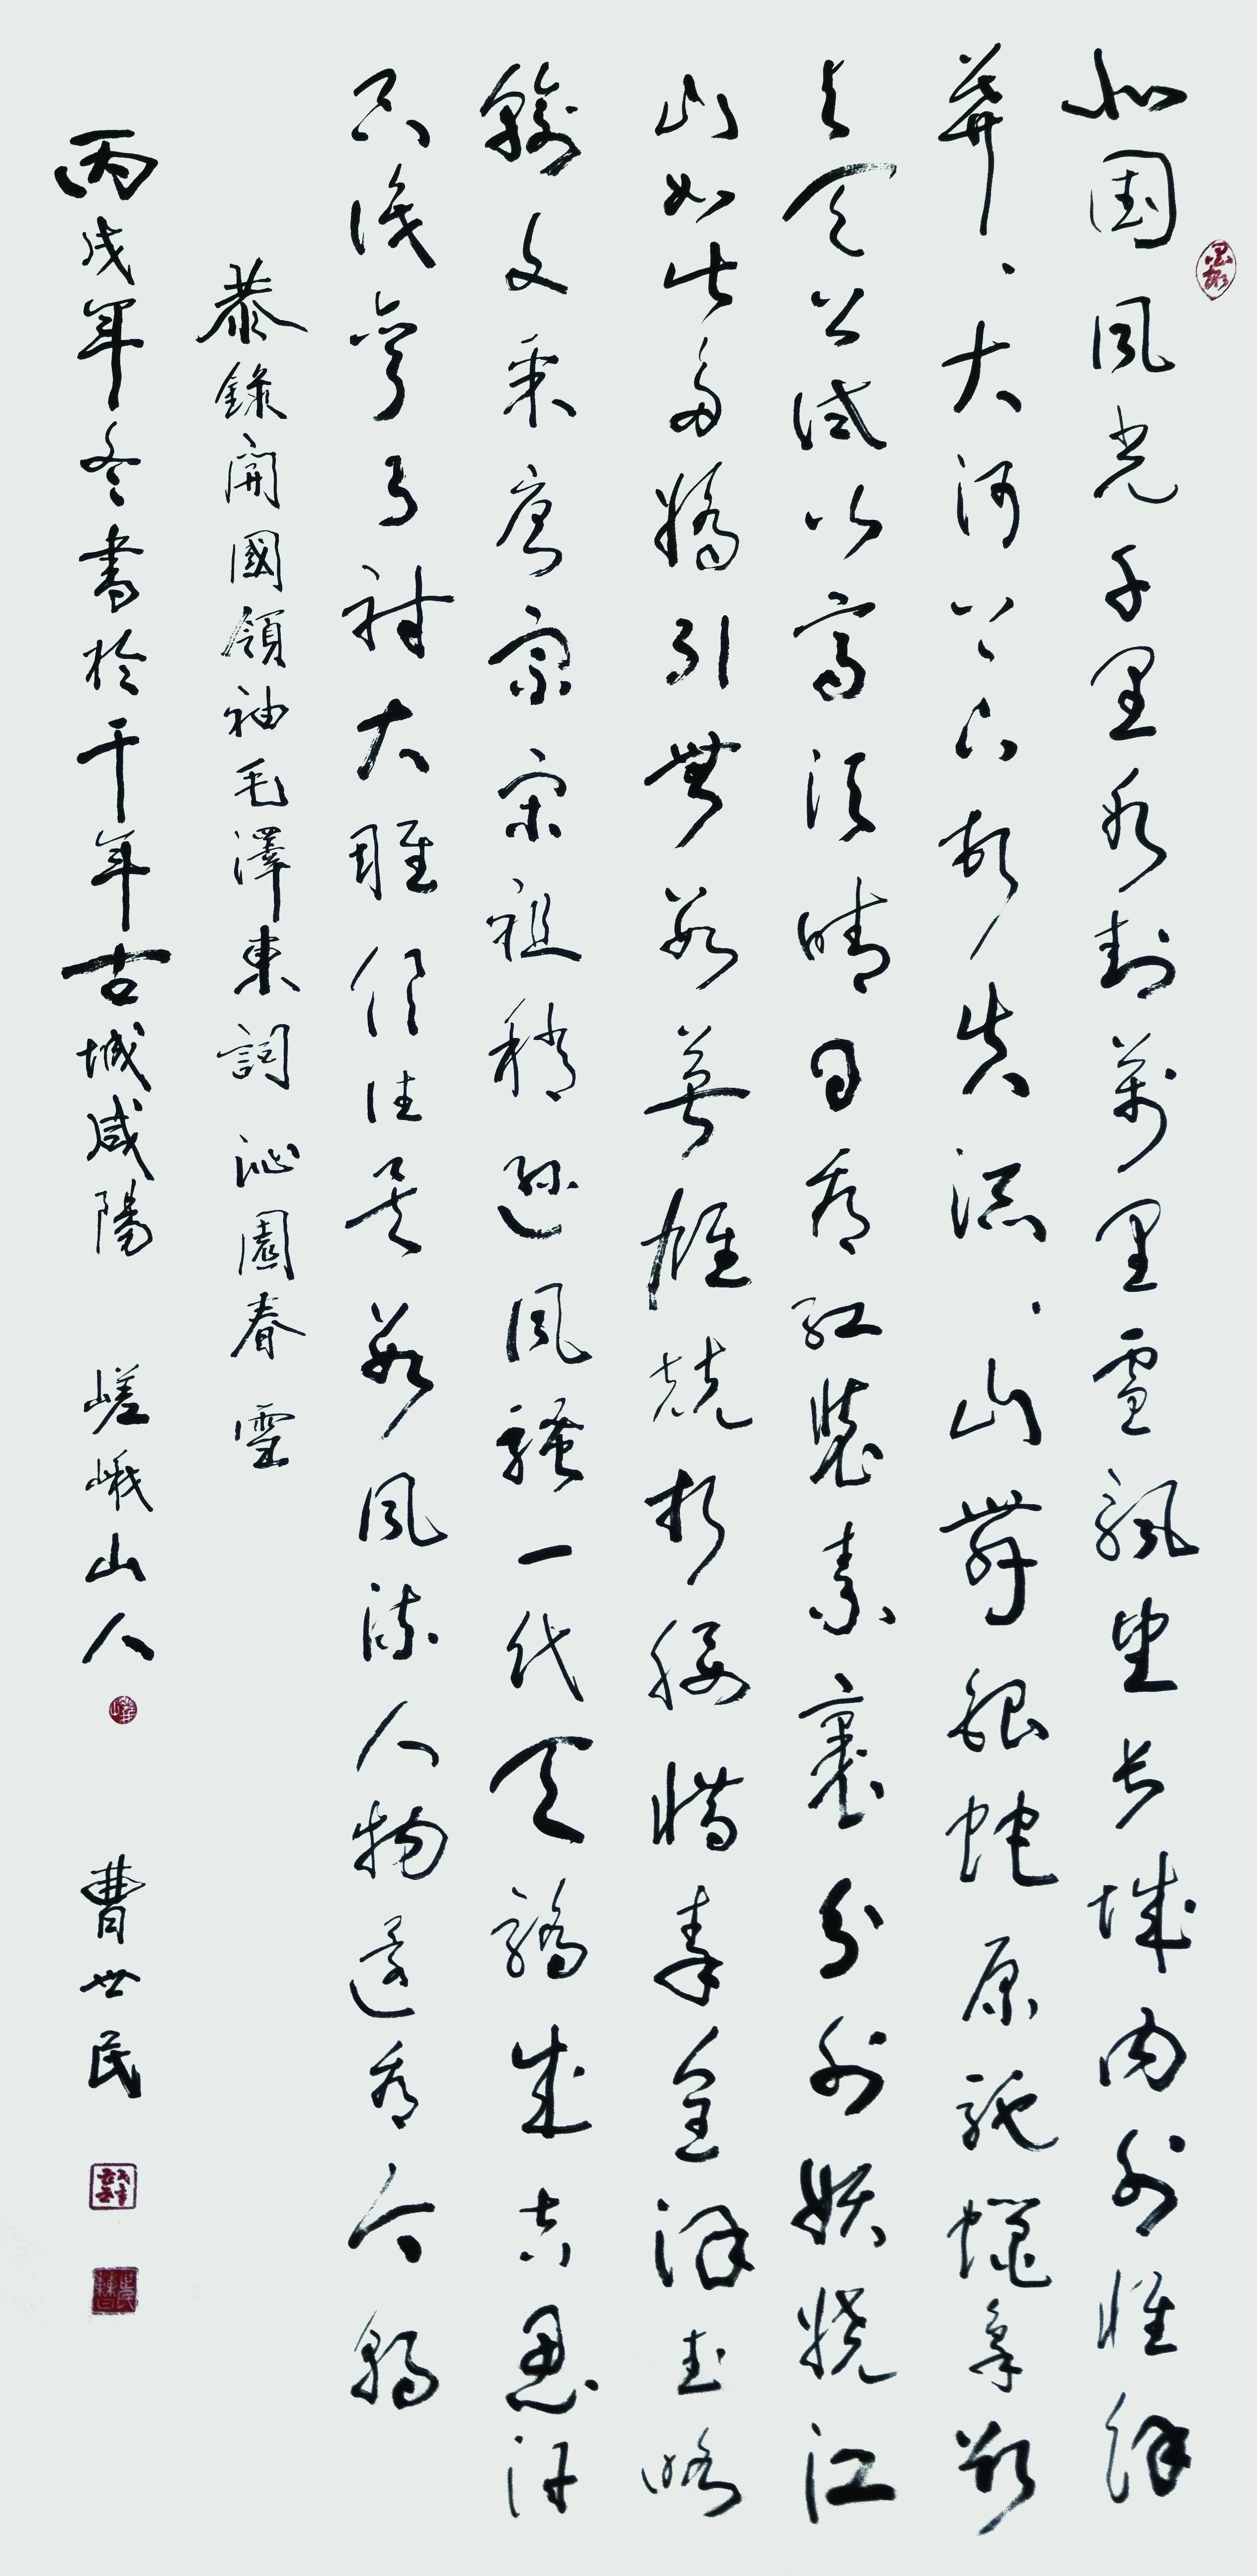 北国風光千里冰封萬里雪飄望长城内外惟餘
莽、大河上下頓失滔、山舞銀蛇原馳蠟象欲
与天公試比高須晴日看紅裝素裹分外妖嬈江
山如此多嬌引無數英雄競折腰惜秦皇漢武略
輸文采唐宗宋祖稍遜風騷一代天驕成吉思汗
只識彎弓射大雕俱往矣數風流人物還看今朝
恭錄開國領袖毛澤東詞 沁園春 雪
丙戌年冬書於千年古城咸陽 嵯峨山人 曹世民